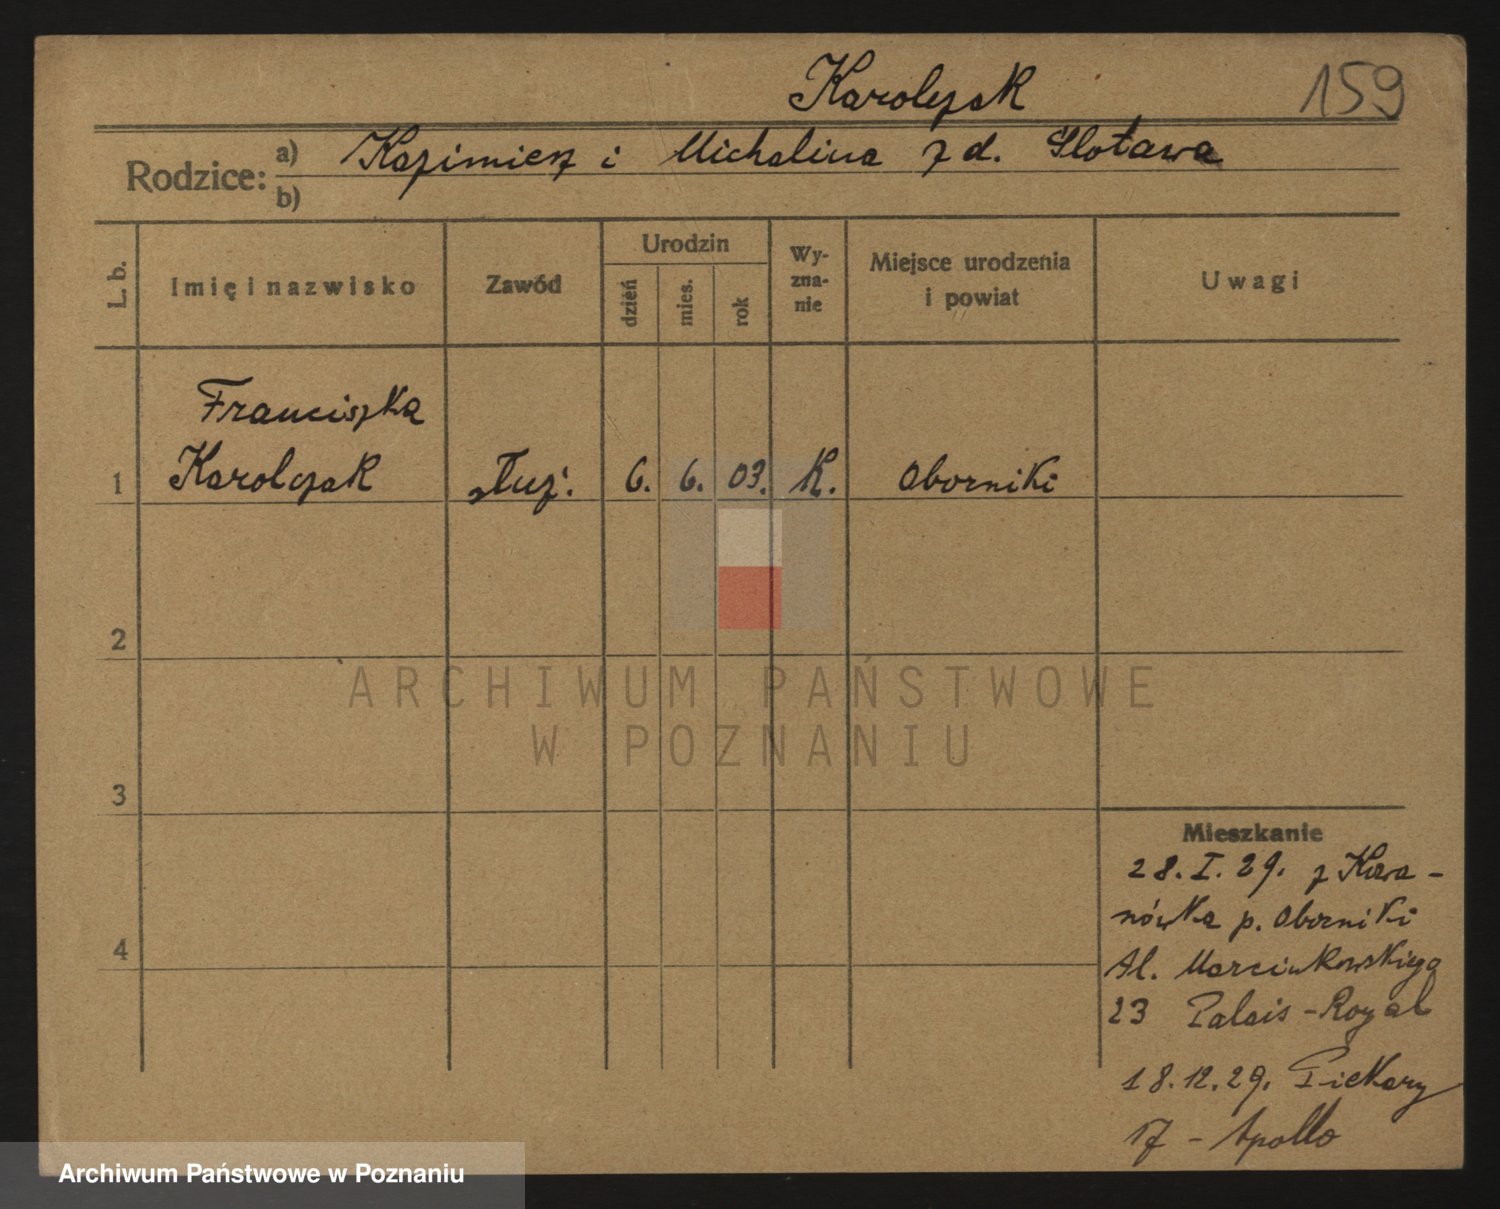 Karolczak 159
Rodzice: a) Kazimierz i Michalina z d. Słotawa
b)
L. b.
Imię i nazwisko
Zawód
Urodzin
dzień
mies.
rok
Wy-
zna-
nie
Miejsce urodzenia
i powiat
Uwagi
Franciszka
1 Karolczak służ. 6. 6. 03. K. Oborniki
2
ARCHIWUM PAŃSTWOWE
W POZNANIU
3
Mieszkanie
28.I.29. z Kowa-
nówka p. Oborniki
4
Al. Marcinkowskiego
23 Palais-Royal
18.12.29. Piekary
17 - Apollo
Archiwum Państwowe w Poznaniu